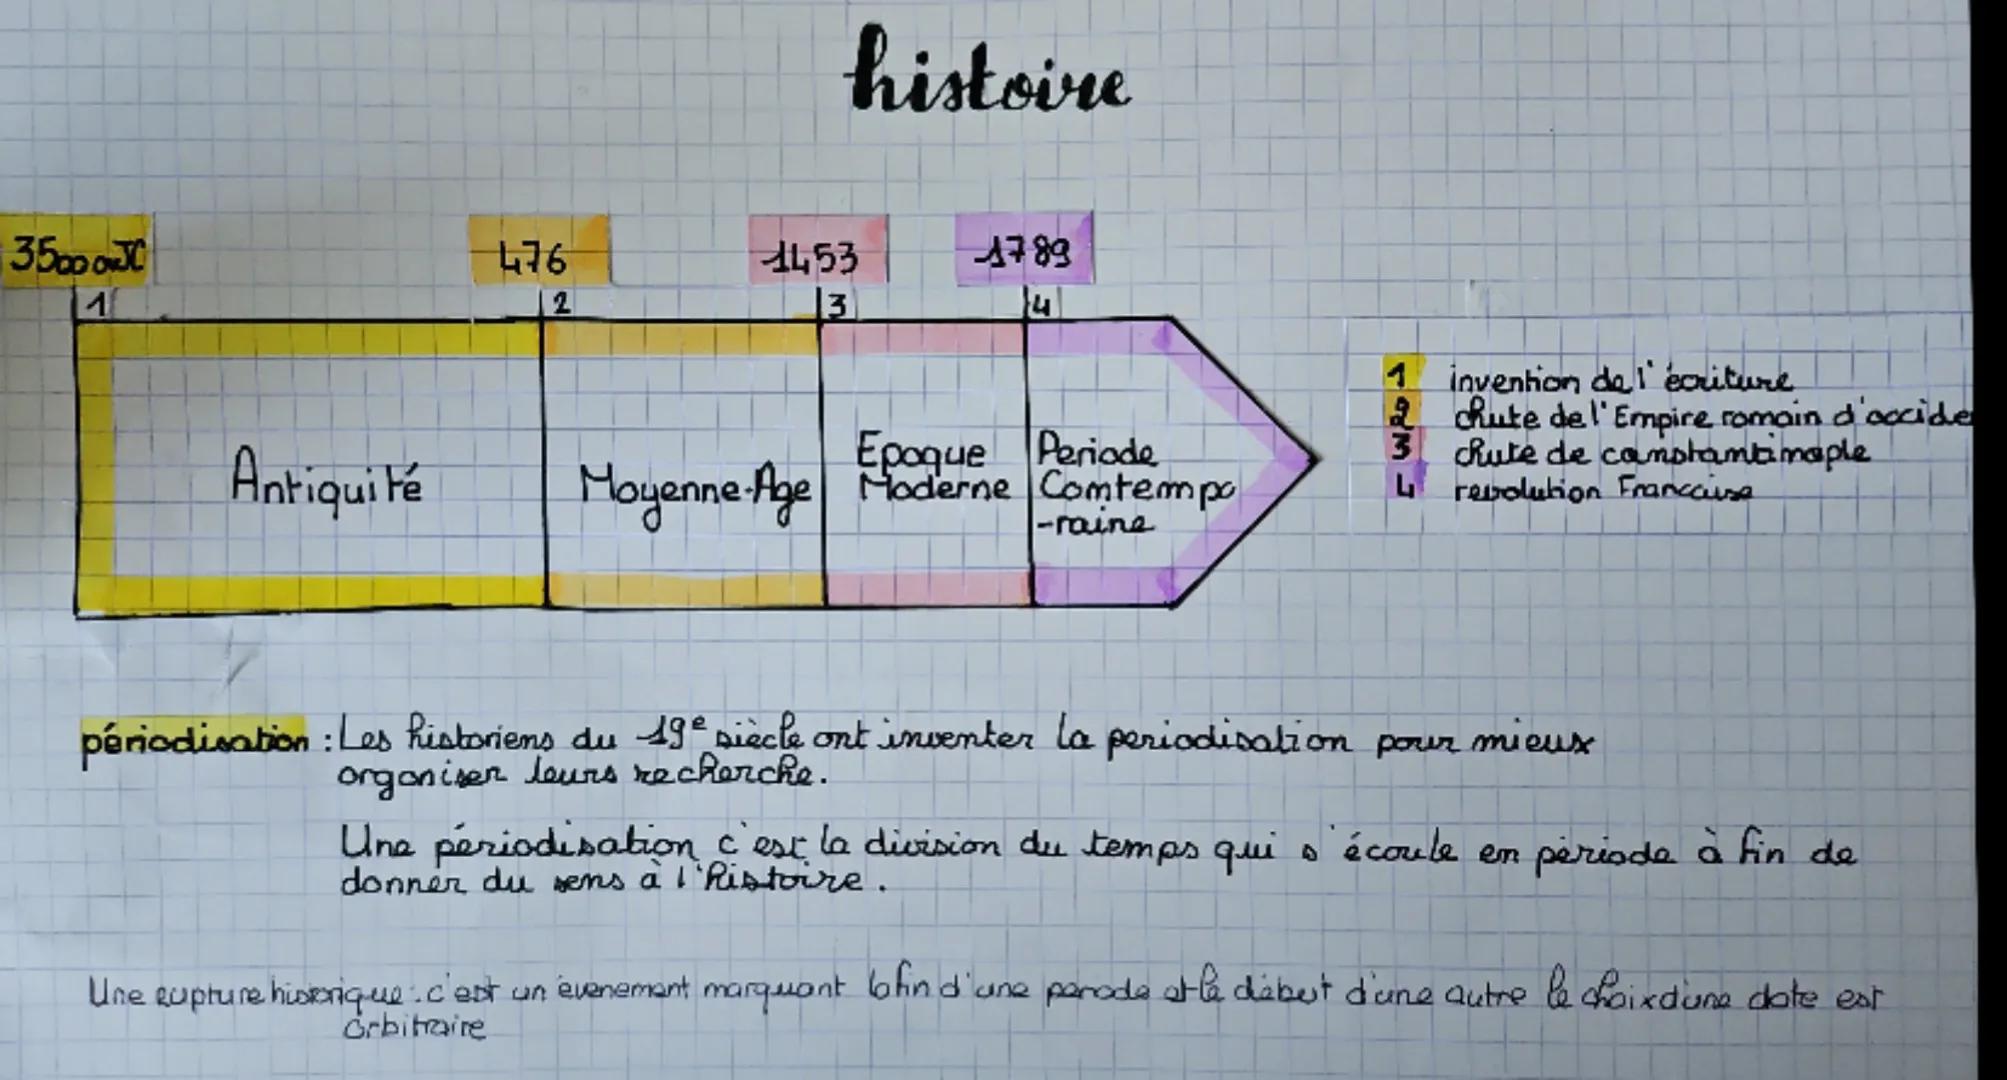 histoire
35000 avJC 476 1453 1789
1 2 3 4
Antiquité
Moyenne-Age
Epoque
Moderne
Periode
Comtempo
-raine
1 invention de l'écriture
2 chute de l'Empire romain d'accide
3 chute de constantinople
4 revolution Francaise
périodisation : Les historiens du 19e siècle ont inventer la periodisation pour mieux
organiser leurs recherche.
Une périodisation c'est la division du temps qui s'écoule en période à fin de
donner du sens à l'histoire.
Une rupture historique : c'est un évenement marquant la fin d'une periode et le début d'une autre le choix d'une date est
arbitraire